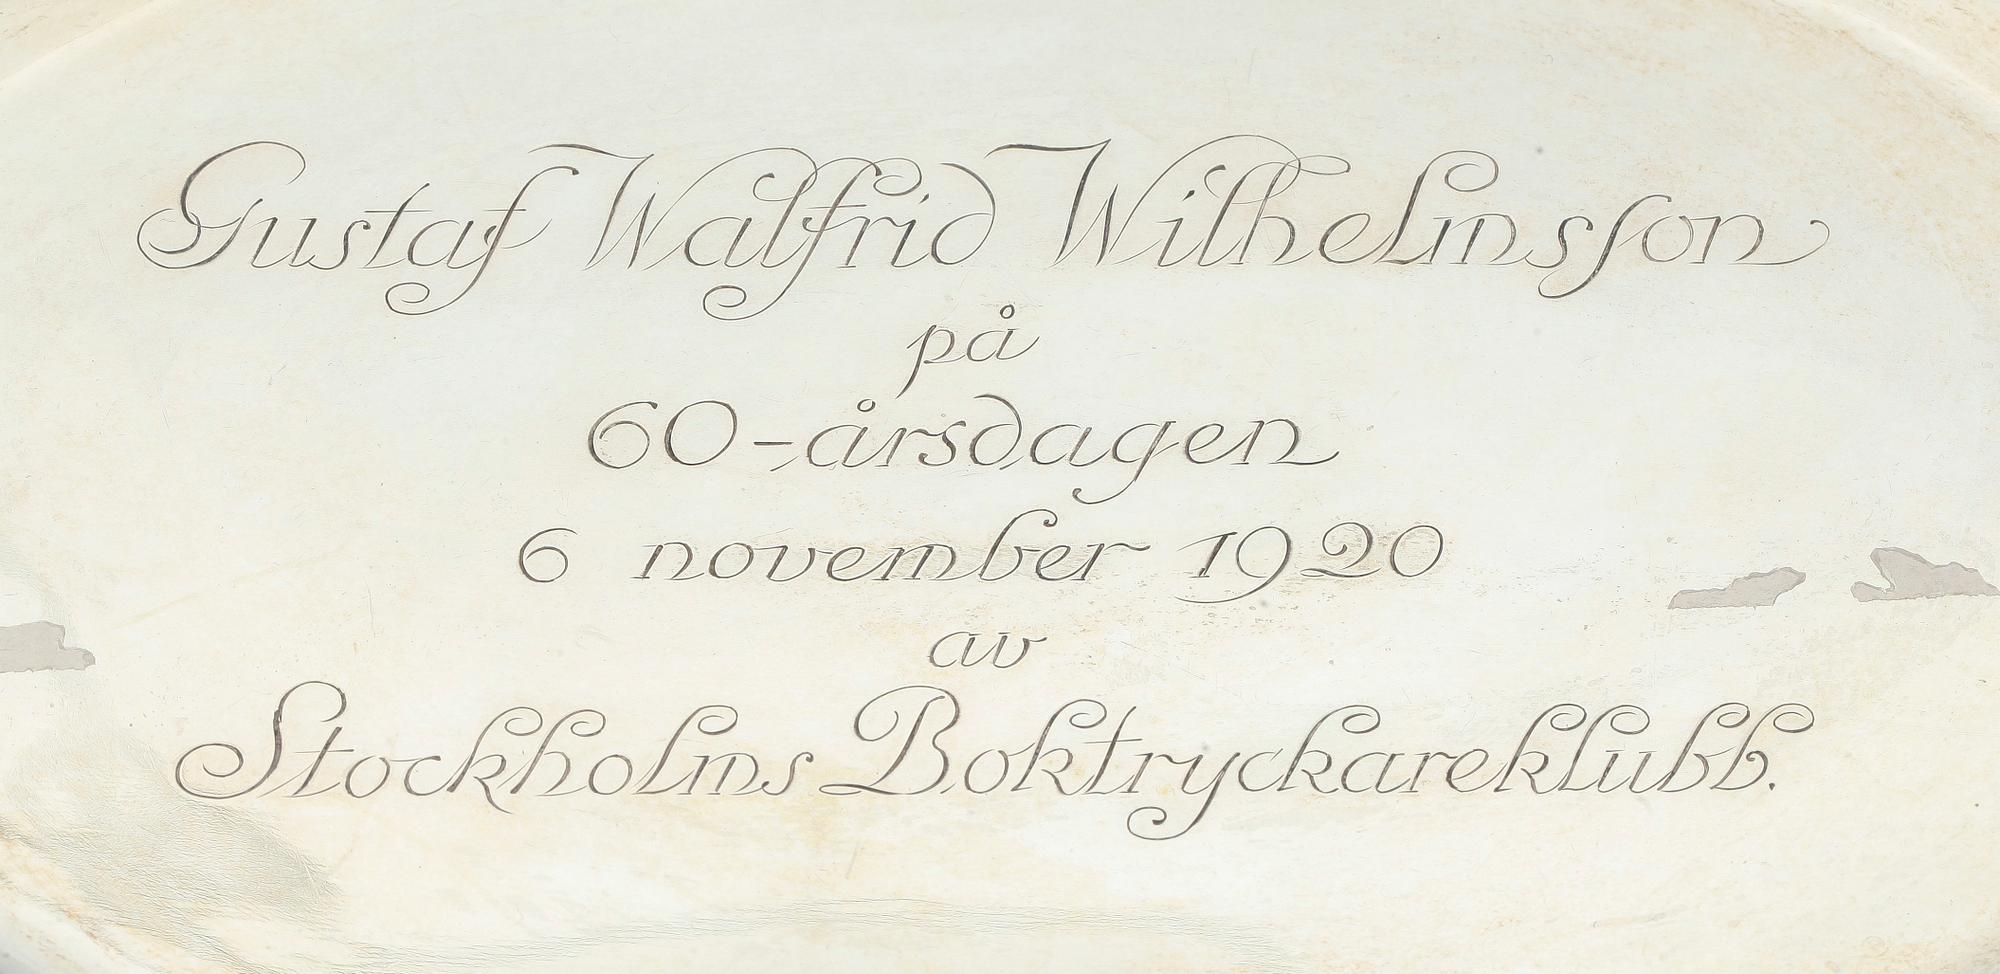 Gustaf Walfrid Wilhelmsson
på
60-årsdagen
6 november 1920
av
Stockholms Boktryckareklubb.